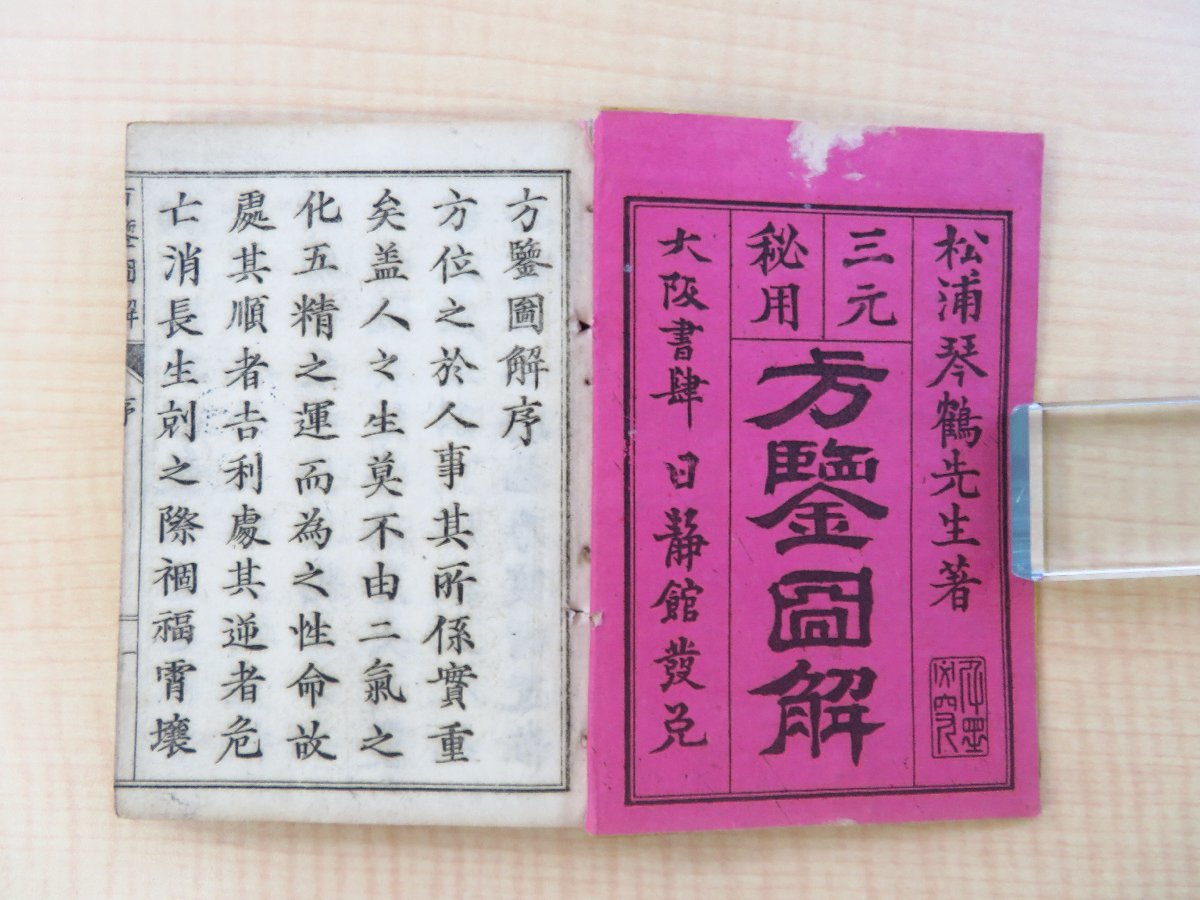 松浦琴鶴先生著
三元
秘用
方鑒圖解
大阪書肆 日靜館發兌
方鑒圖解序
方位之於人事其所係實重
矣盖人之生莫不由二氣之
化五精之運而為之性命故
處其順者吉利處其逆者危
亡消長生剋之際禍福霄壤
方鑒圖解
序